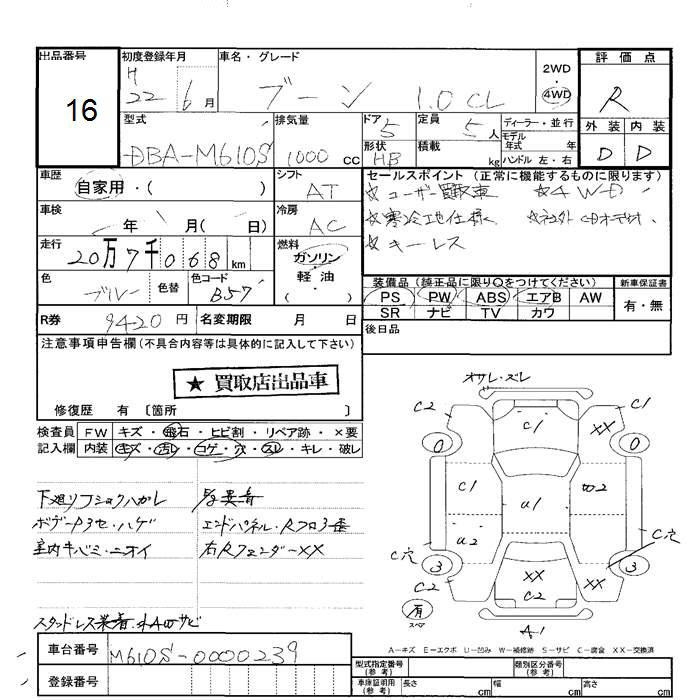 出品番号 初度登録年月 車名・グレード 評価点
16
H 22 6月 ブーン 1.0 CL 2WD ・ 4WD R
型式 排気量 ドア 5 定員 5人 ディーラー・並行 外装 内装
モデル年式 年
DBA-M610S 1000 cc 形状 HB 積載 kg ハンドル 左・右 D D
車歴 シフト セールスポイント (正常に機能するものに限ります)
自家用・( ) AT ☆ユーザー買取車 ☆4WD
車検 冷房 ☆寒冷地仕様
年 月( 日) AC ☆キーレス
走行 燃料
20万7千068km ガソリン
軽油
( )
色 色替 色コード 装備品 (純正品に限り○をつけてください) 新車保証書
ブルー B57 PS PW ABS エアB AW 有・無
SR ナビ TV カワ
R券 9420円 名変期限 月 日 後日品
注意事項申告欄(不具合内容等は具体的に記入して下さい)
★ 買取店出品車
修復歴 有 〔箇所 〕
検査員記入欄 FW キズ・飛石・ヒビ割・リペア跡・×要
内装 キズ・汚レ・コゲ・穴・スレ・キレ・破レ
下廻リフショクハガレ
ボデーキ3セ・ハゲ エンドパネル・Rフロ3歪
室内キバミ・ニオイ 右RフェンダーXX
オサレ・ズレ
C2 C1 C1 XX
0 0
C1 U1
U2 C穴
C穴 3 XX XX 3
C2 C2 C2
有 スペア A1
車台番号 M610S-0000239
登録番号
A－キズ E－エクボ U－凹み W－補修跡 S－サビ C－腐食 XX－交換済
型式指定番号(参考) 類別区分番号(参考)
車庫証明用(参考) 長さ cm 幅 cm 高さ cm